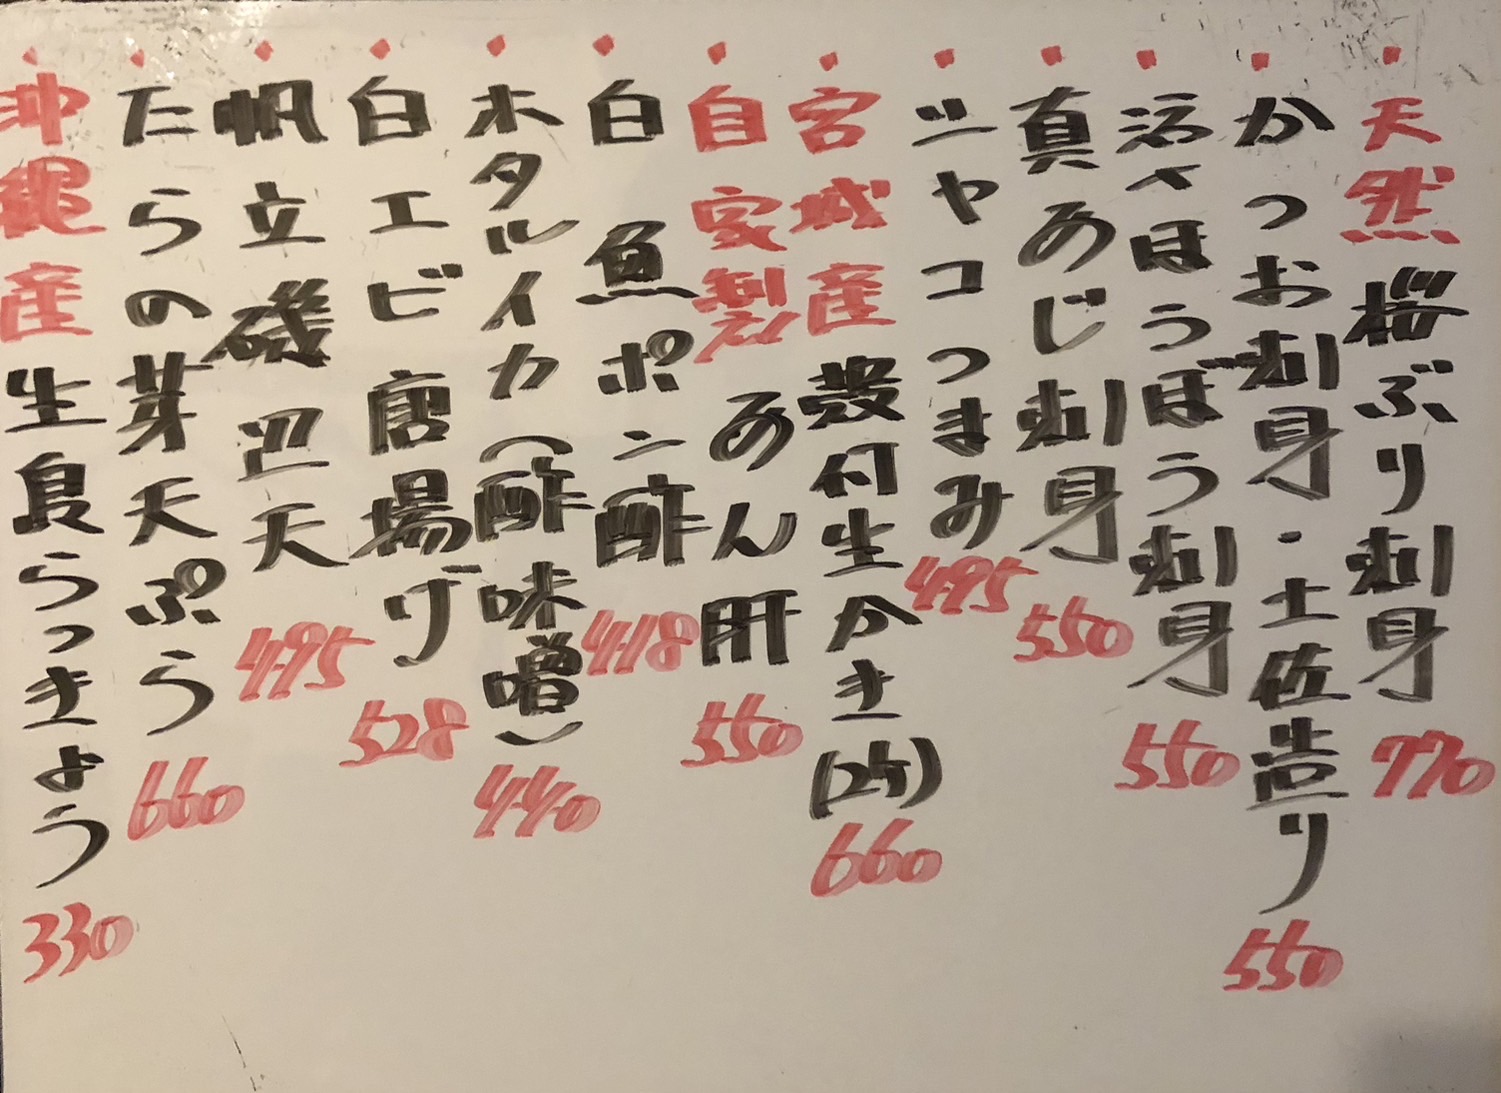 天然桜ぶり刺身 770
かつお刺身・土佐造り 550
活〆ほうぼう刺身 550
真あじ刺身 550
シャコつまみ 495
宮城産殻付生かき(2ケ) 660
自家製あん肝 550
白魚ポン酢 418
ホタルイカ(酢味噌) 440
白エビ唐揚げ 528
帆立磯辺天 495
たらの芽天ぷら 660
沖縄産生島らっきょう 330